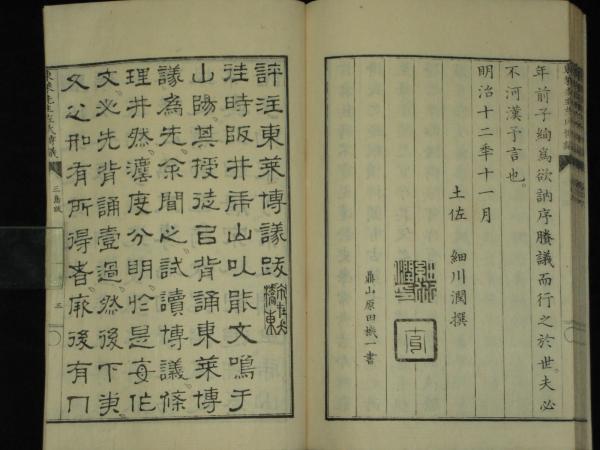 年前子絢爲欲訥序賸議而行之於世夫必
不河漢予言也
明治十二年十一月
土佐 細川潤撰
鼎山原田機一書
評注東萊博議跋
往時阪井虎山以能文鳴于
山陽其授徒以背誦東萊博
議為先余聞之試讀博議條
理井然濃度分明於是每作
文必先背誦壹過然後下筆
文必和有所得者厥後有門
三島跋
三